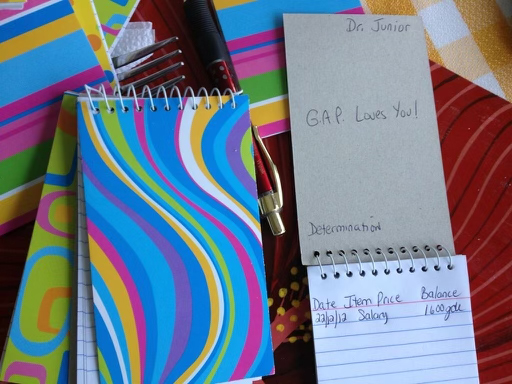 Dr. Junior
G.A.P. Loves You!
Determination
Date Item Price Balance
22/2/12 Salary 1600gde